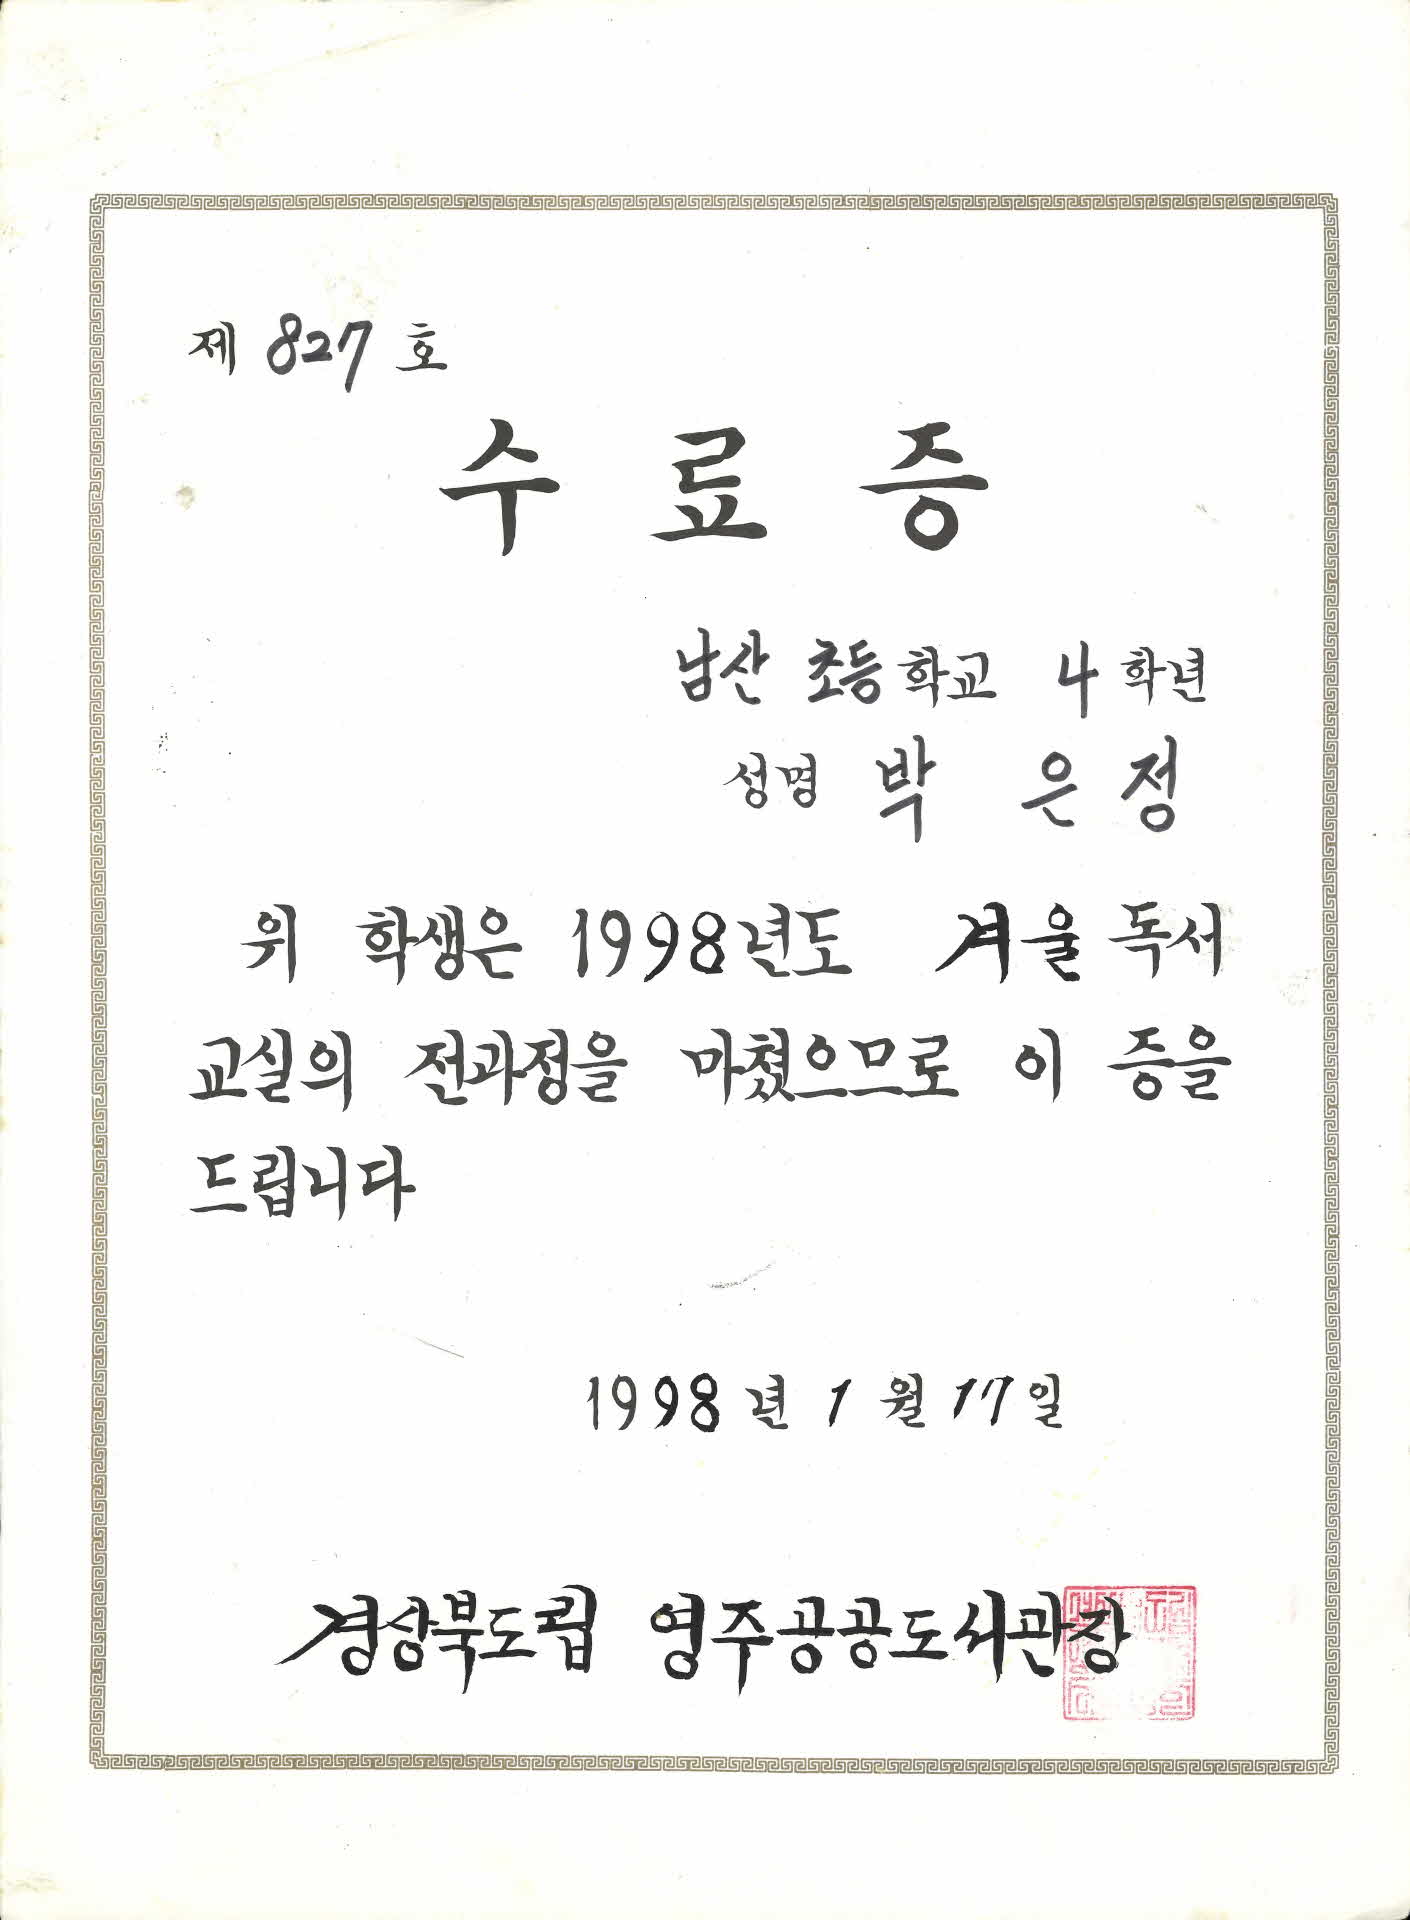 제 827 호
수 료 증
남산 초등학교 4 학년
성명 박 은 정
위 학생은 1998년도 겨울 독서
교실의 전과정을 마쳤으므로 이 증을
드립니다
1998 년 1 월 17 일
경상북도립 영주공공도서관장